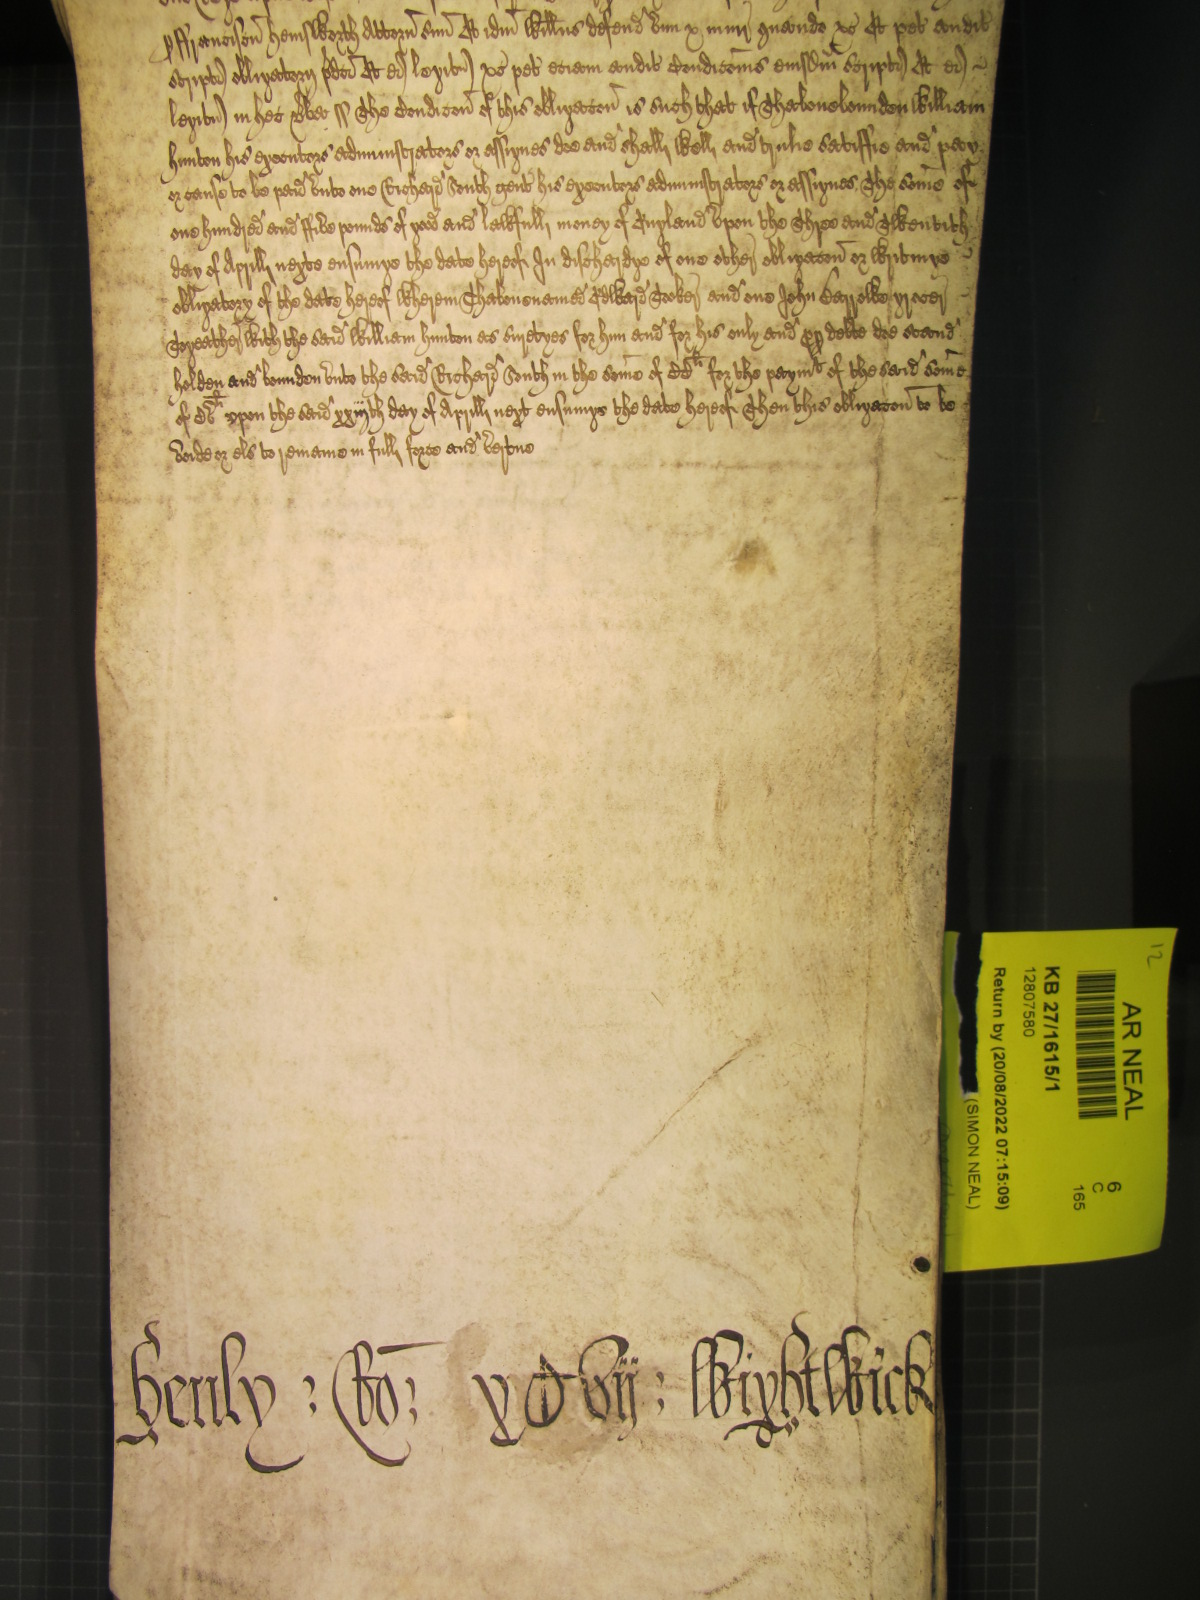 p ffranciscu Hemsworth Attorn suu Et idm Willus defend vim & iniur quando &c Et pet auditu
scripti obligatorij pdci Et ei legitur &c pet eciam auditu Condicionis eiusdm scripti Et ei
legitur in hec verba ss The Condicon of this obligacon is such that if Thabovebounden William
Hunton his executors administrators or assignes doe and shall well and trulie satisfie and pay
or cause to be paid unto one Richard South gent his executors administrators or assignes The some of
one hundred and ffive pounds of good and lawfull money of England Upon the Three and Twentith
day of Aprill nexte ensuinge the date hereof In dischardge of one other obligacon or writinge
obligatory of the date hereof wherein Thabovenamed Edward Tooker and one John grocer
Togeather with the said William Hunton as suretyes for him and for his only and pp debte doe stand
holden and bounden unto the said Richard South in the some of CCli for the paymt of the said some
of CVli upon the said xxiijth day of Aprill next ensuinge the date hereof Then this obligacon to be
voide or els to remaine in full force and vertue
Henly : Ro: xCvij : WightWick
12
AR NEAL
6
C
165
KB 27/1615/1
12807580
Return by (20/08/2022 07:15:09)
(SIMON NEAL)